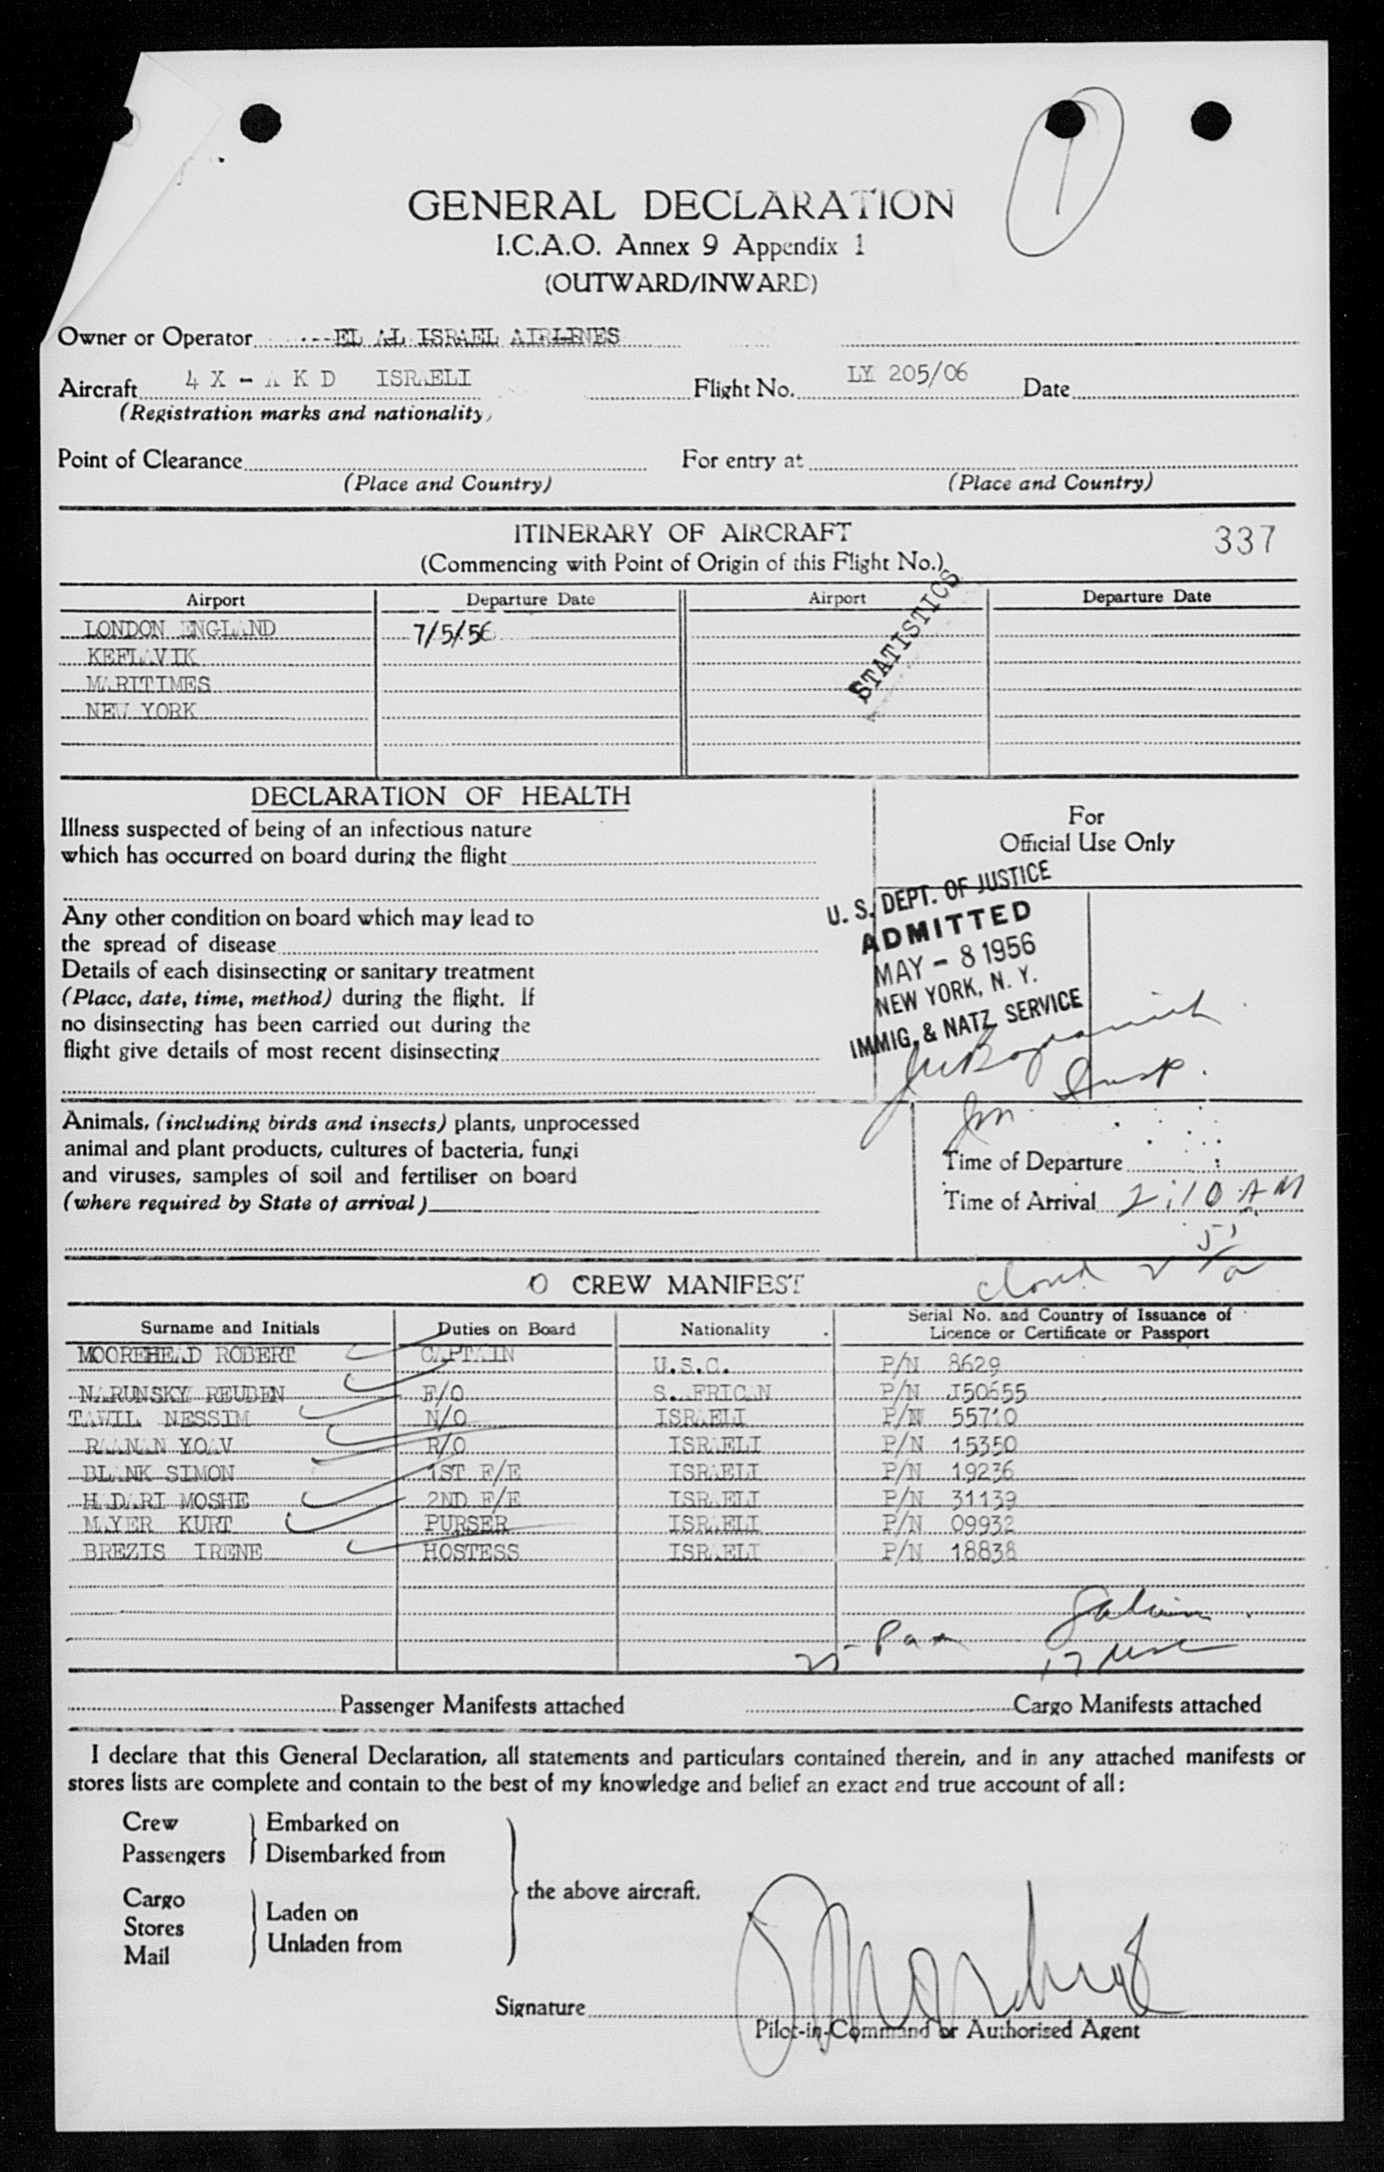 1
GENERAL DECLARATION
I.C.A.O. Annex 9 Appendix 1
(OUTWARD/INWARD)
Owner or Operator ---EL AL ISRAEL AIRLINES
Aircraft 4 X - A K D ISRAELI Flight No. LY 205/06 Date
(Registration marks and nationality)
Point of Clearance For entry at
(Place and Country) (Place and Country)
ITINERARY OF AIRCRAFT 337
(Commencing with Point of Origin of this Flight No.)
STATISTICS
Airport Departure Date Airport Departure Date
LONDON ENGLAND 7/5/56
KEFLAVIK
MARITIMES
NEW YORK
DECLARATION OF HEALTH
Illness suspected of being of an infectious nature
which has occurred on board during the flight
Any other condition on board which may lead to
the spread of disease
Details of each disinsecting or sanitary treatment
(Place, date, time, method) during the flight. If
no disinsecting has been carried out during the
flight give details of most recent disinsecting
For
Official Use Only
U. S. DEPT. OF JUSTICE
ADMITTED
MAY - 8 1956
NEW YORK, N. Y.
IMMIG. & NATZ. SERVICE
Animals, (including birds and insects) plants, unprocessed
animal and plant products, cultures of bacteria, fungi
and viruses, samples of soil and fertiliser on board
(where required by State of arrival)
Time of Departure
Time of Arrival 2:10 AM
O CREW MANIFEST
Surname and Initials Duties on Board Nationality Serial No. and Country of Issuance of
Licence or Certificate or Passport
MOOREHEAD ROBERT CAPTAIN U.S.C. P/N 8629
NARUNSKY REUBEN F/O S.AFRICAN P/N J50655
TAWIL NESSIM N/O ISRAELI P/N 55710
RAANAN YOAV R/O ISRAELI P/N 15350
BLANK SIMON 1ST F/E ISRAELI P/N 19236
HADARI MOSHE 2ND F/E ISRAELI P/N 31139
MAYER KURT PURSER ISRAELI P/N 09932
BREZIS IRENE HOSTESS ISRAELI P/N 18838
Pax
Passenger Manifests attached Cargo Manifests attached
I declare that this General Declaration, all statements and particulars contained therein, and in any attached manifests or
stores lists are complete and contain to the best of my knowledge and belief an exact and true account of all:
Crew Embarked on
Passengers Disembarked from
the above aircraft.
Cargo
Stores Laden on
Mail Unladen from
Signature
Pilot-in-Command or Authorised Agent